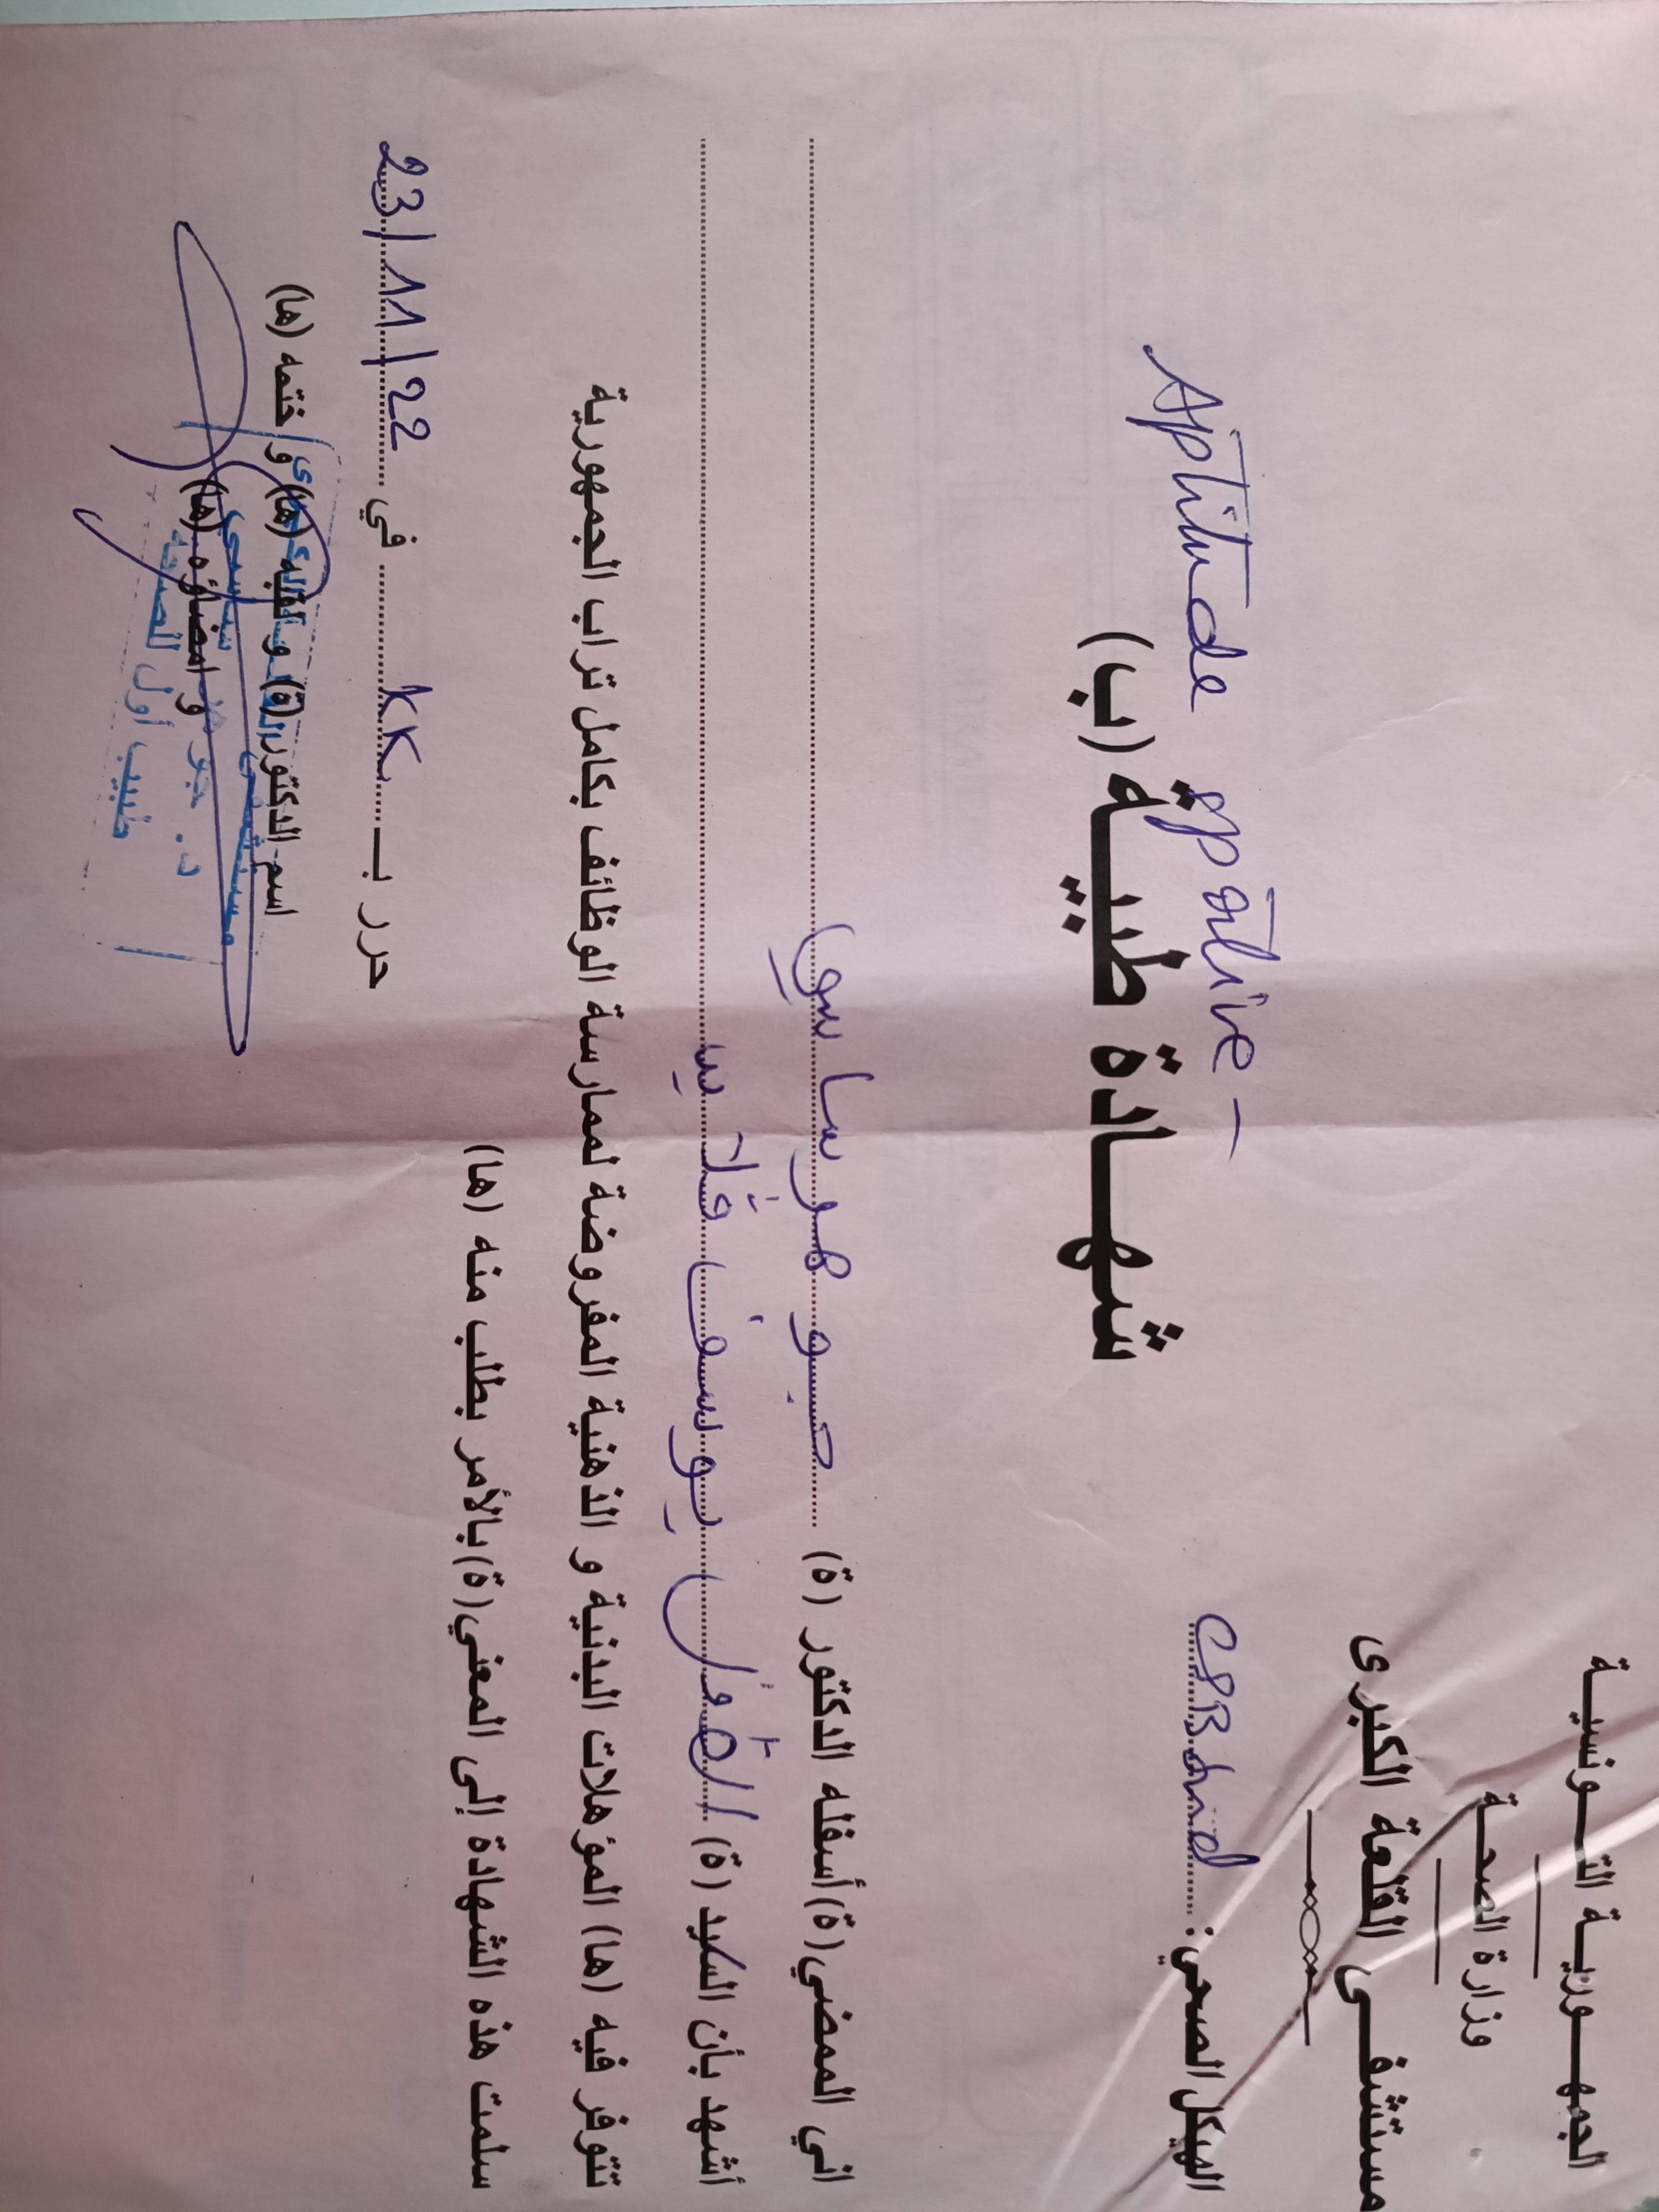 الجمهورية التونسية
وزارة الصحة
مستشفى القلعة الكبرى
الهيكل الصحي:
Aptitude sportive -
شهادة طبية (ب)
اني الممضي(ة) أسفله الدكتور (ة)
أشهد بأن السيد (ة) يوسف
تتوفر فيه (ها) المؤهلات البدنية و الذهنية المفروضة لممارسة الوظائف بكامل تراب الجمهورية
سلمت هذه الشهادة إلى المعني(ة) بالأمر بطلب منه (ها)
حرر بـ KK في 23/11/22
اسم الدكتور(ة) و لقبه (ها) و ختمه (ها)
و امضاؤه (ها)
مستشفى
طبيب أول للصحة